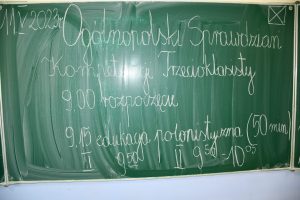 11 V 2023r. Ogólnopolski Sprawdzian
Kompetencji Trzecioklasisty
9.00 rozpoczęcie
9.15 edukacja polonistyczna (50 min)
II 9⁵⁰ - 10⁰⁵